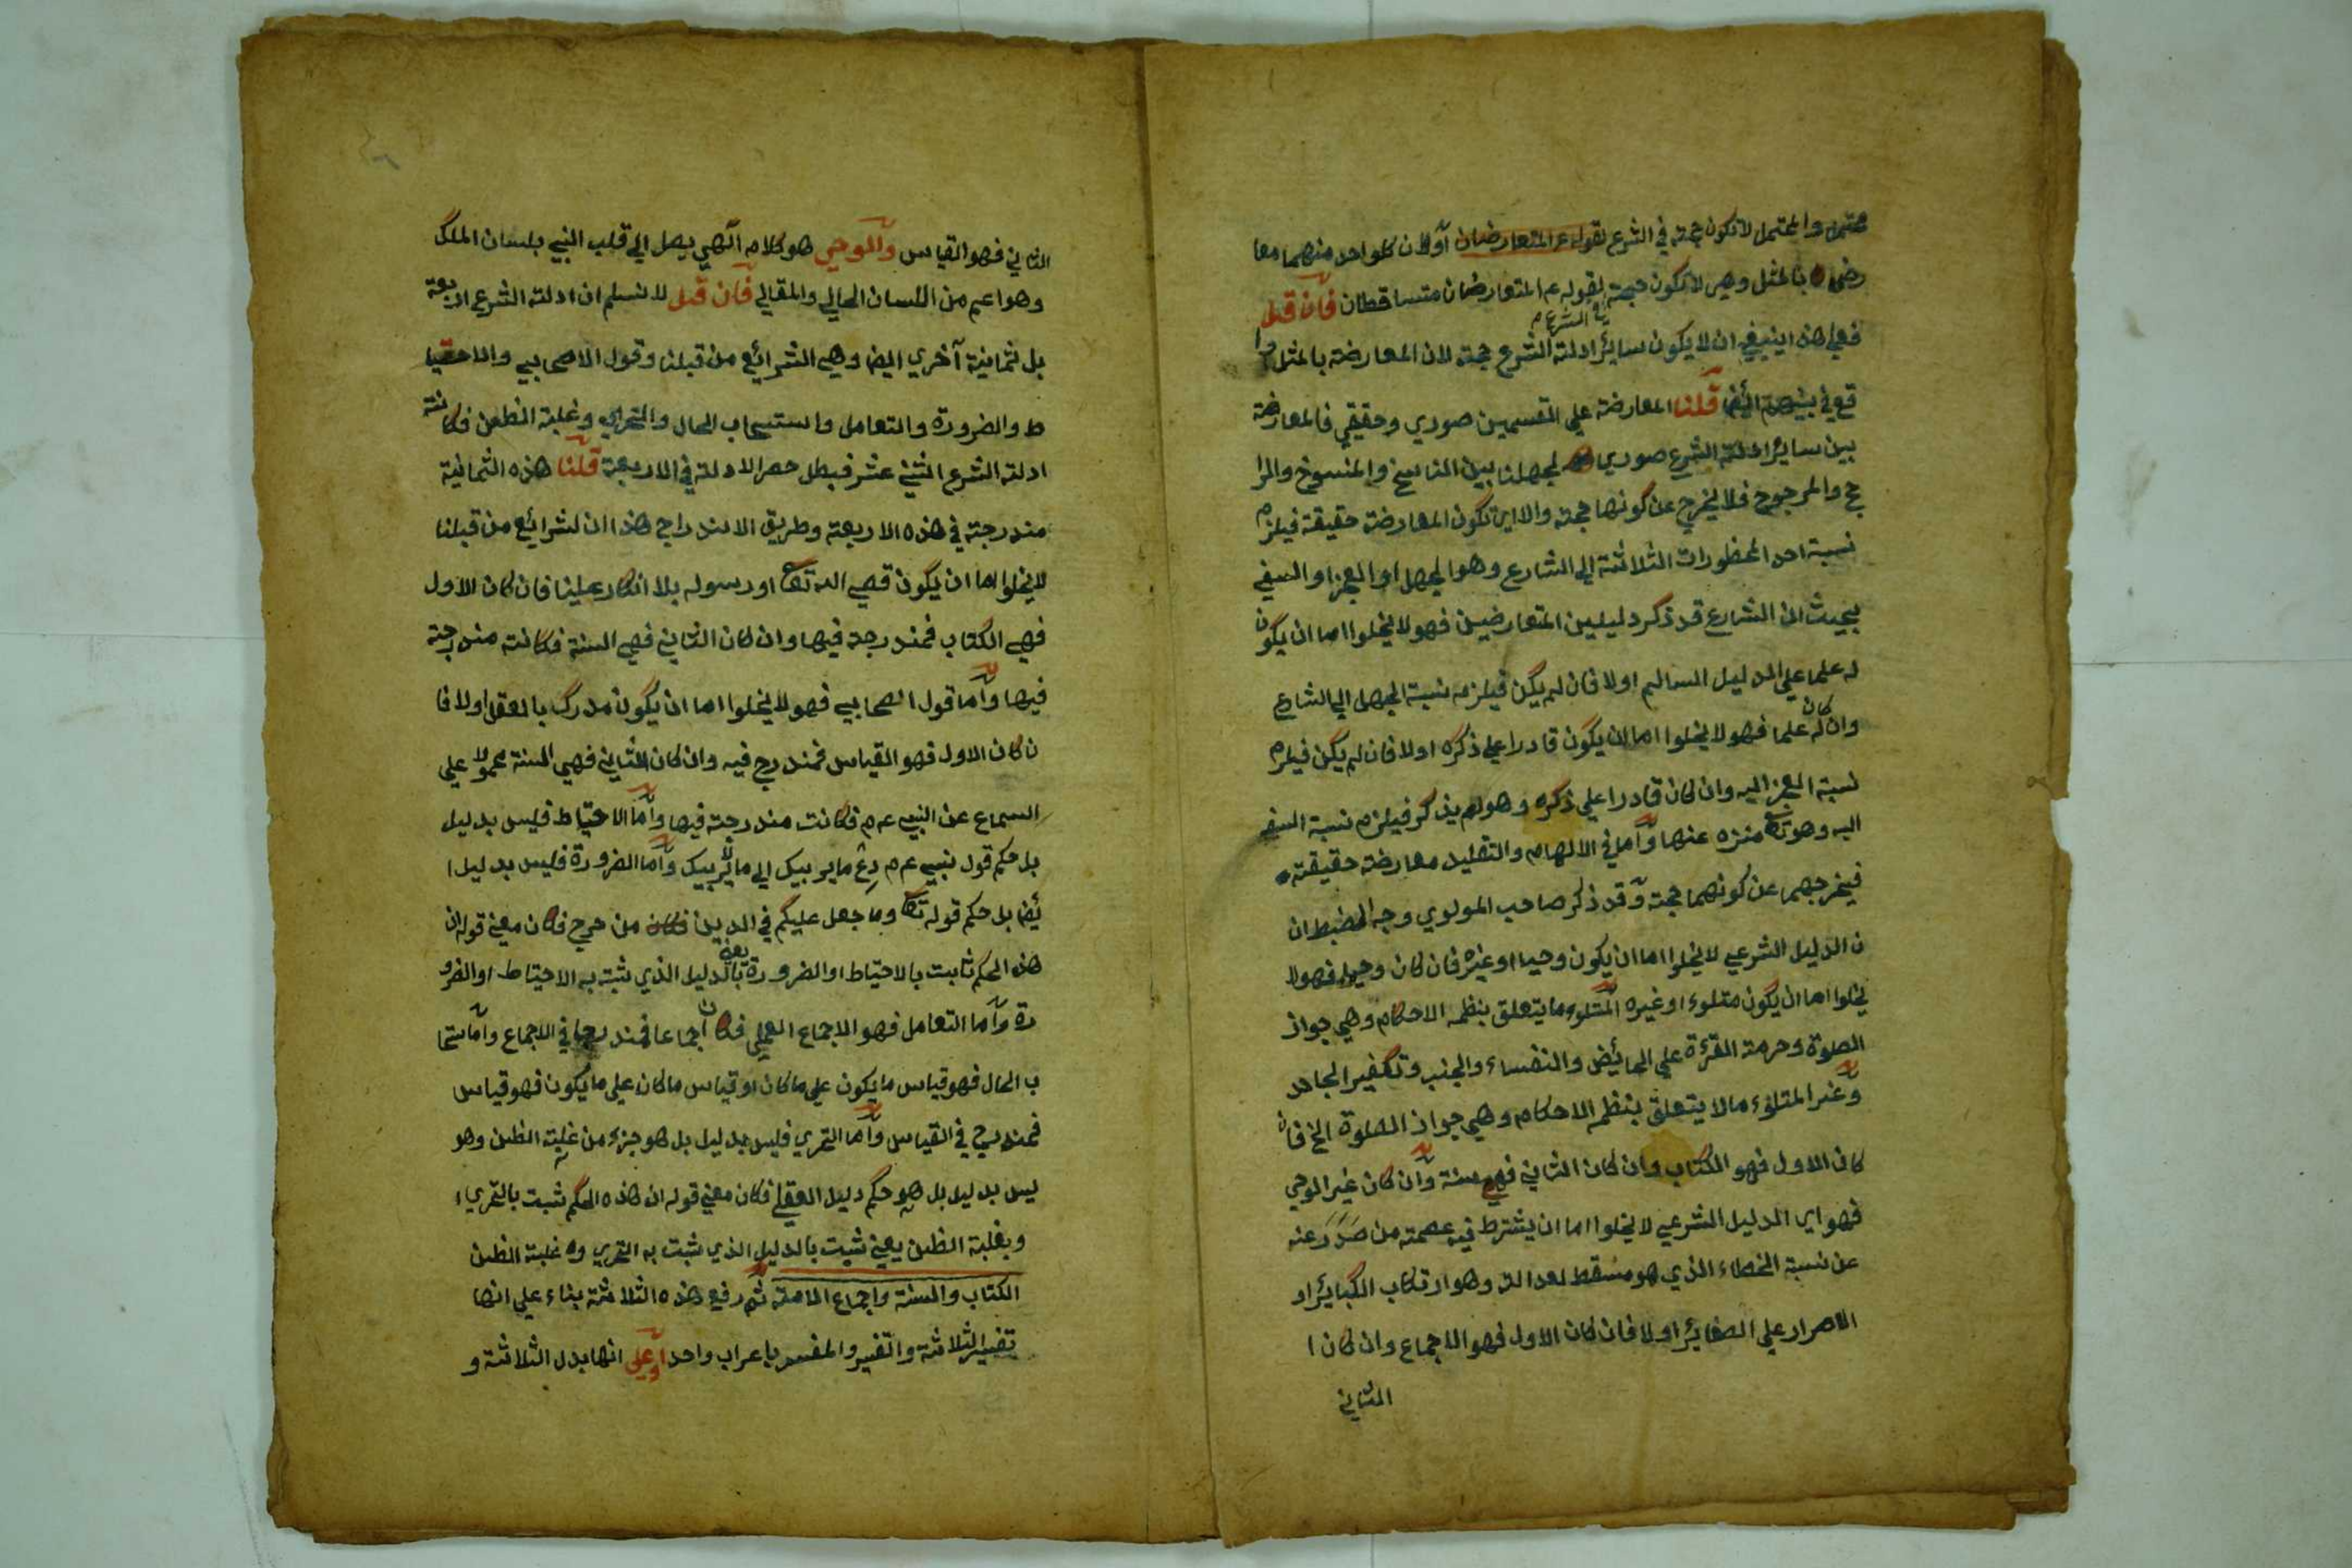 محتمل والمحتمل لا تكون حجة في الشرع لقوله عم المتعارضان أولان كلواحد منهما معا
رض بالمثل وهي لا تكون حجة لقوله عم المتعارضان متساقطان فان قيل
في الشرع م
فعلي هذا ينبغي ان لا يكون ساير ادلة الشرع حجة لان المعارضة بالمثل وا
قع في بينهم ايضا قلنا المعارضة علي القسمين صوري وحقيقي فالمعارضة
بين ساير ادلة الشرع صوري لجهلنا بين الناسخ والمنسوخ والرا
جح والمرجوح فلا يخرج عن كونها حجة والا اي تكون المعارضة حقيقة فيلزم
نسبة احد المحظورات الثلاثة الي الشارع وهو الجهل او العجز او السفه
بحيث ان الشارع قد ذكر دليلين المتعارضين فهو لا يخلوا اما ان يكون
له علما علي الدليل السالم اولا فان لم يكن فيلزم نسبة الجهل الي الشارع
وان كان له علما فهو لا يخلوا اما ان يكون قادرا علي ذكره اولا فان لم يكن فيلزم
نسبة العجز اليه وان كان قادرا علي ذكره وهو لم يذكر فيلزم نسبة السفه
اليه وهو تع منزه عنها واما في الالهام والتقليد معارضة حقيقة
فيخرجهما عن كونهما حجة وقد ذكر صاحب المولوي وجه الضبط ان
ن الدليل الشرعي لا يخلوا اما ان يكون وحيا او غيره فان كان وحيا فهو لا
يخلوا اما ان يكون متلوء او غيره المتلوء ما يتعلق بنظمه الاحكام وهي جواز
الصلوة وحرمة القرءة علي الحائض والنفساء والجنب وتكفير الجاحد
وغير المتلوء ما لا يتعلق بنظمه الاحكام وهي جواز الصلوة الخ فان
كان الاول فهو الكتاب وان كان الثاني فهي سنة وان كان غير الوحي
فهو اي الدليل الشرعي لا يخلوا اما ان يشترط فيه عصمته من صدر عنه
عن نسبة الخطاء الذي هو مسقط لعدالة وهو ارتكاب الكبائر او
الاصرار علي الصغاير اولا فان كان الاول فهو الاجماع وان كان ا
الثاني
الثاني فهو القياس والوحي هو كلام الهي يصل الي قلب النبي بلسان الملك
وهو اعم من اللسان الحالي والمقالي فان قيل لا نسلم ان ادلة الشرع اربعة
بل ثمانية آخري ايضا وهي الشرائع من قبلنا وقول الاصحابي والاحتيا
ط والضرورة والتعامل واستسحاب الحال والتحري وغلبة الظن فكانة
ادلة الشرع اثني عشر فبطل حصر الادلة في الاربعة قلنا هذه الثمانية
مندرجة في هذه الاربعة وطريق الاندراج هذا ان لشرايع من قبلنا
لا يخلوا اما ان يكون قصي الله تع او رسوله بلا انكار علينا فان كان الاول
فهي الكتاب فمندرجة فيها وان كان الثاني فهي السنة فكانة مندرجة
فيها واما قول الصحابي فهو لا يخلوا اما ان يكون مدرك بالعقل اولا فا
ن كان الاول فهو القياس فمندرج فيه وان كان الثاني فهي السنة محمولا علي
السماع عن النبي عم فكانت مندرجة فيها واما الاحتياط فليس بدليل
بل حكم قول نبي عم دع ما يريبك الي ما لا يريبك واما الضرورة فليس بدليل ا
يضا بل حكم قوله تع وما جعل عليكم في الدين من حرج فكان معني قوله ان
هذه الحكم ثابت بالاحتياط او الضرورة يعني بالدليل الذي ثبت به الاحتياط او الضرو
رة واما التعامل فهو الاجماع العملي فكان اجماعا فمندرجا في الاجماع واما ستحا
ب الحال فهو قياس ما يكون علي ما كان او قياس ما كان علي ما يكون فهو قياس
فمندرج في القياس واما التحري فليس بدليل بل هو جزء من غلبة الظن وهو
ليس بدليل بل هو حكم دليل العقلي فكان معني قوله ان هذه الحكم ثبت بالتحري ا
وبغلبة الظن يعني ثبت بالدليل الذي ثبت به التحري وه غلبة الظن
الكتاب والسنة واجماع الامة ثم رفع هذه الثلاثة بناء علي انها
تفسير الثلاثة والتفسير والمفسر باعراب واحد او علي انها بدل الثلاثة و